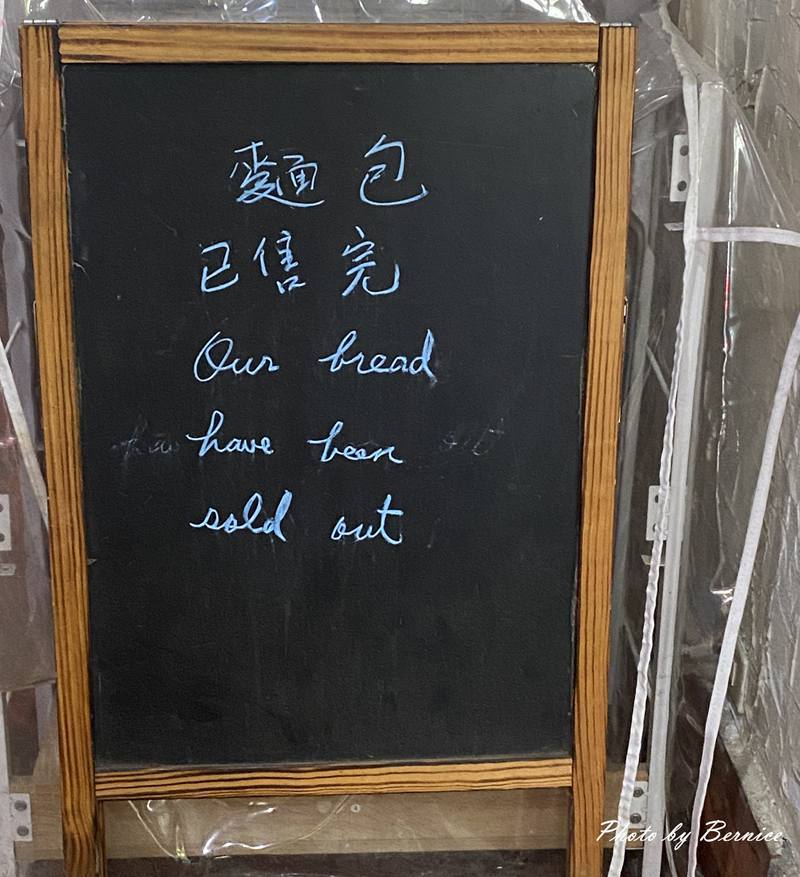 麵包
已售完
Our bread
have been
sold out
Photo by Bernice